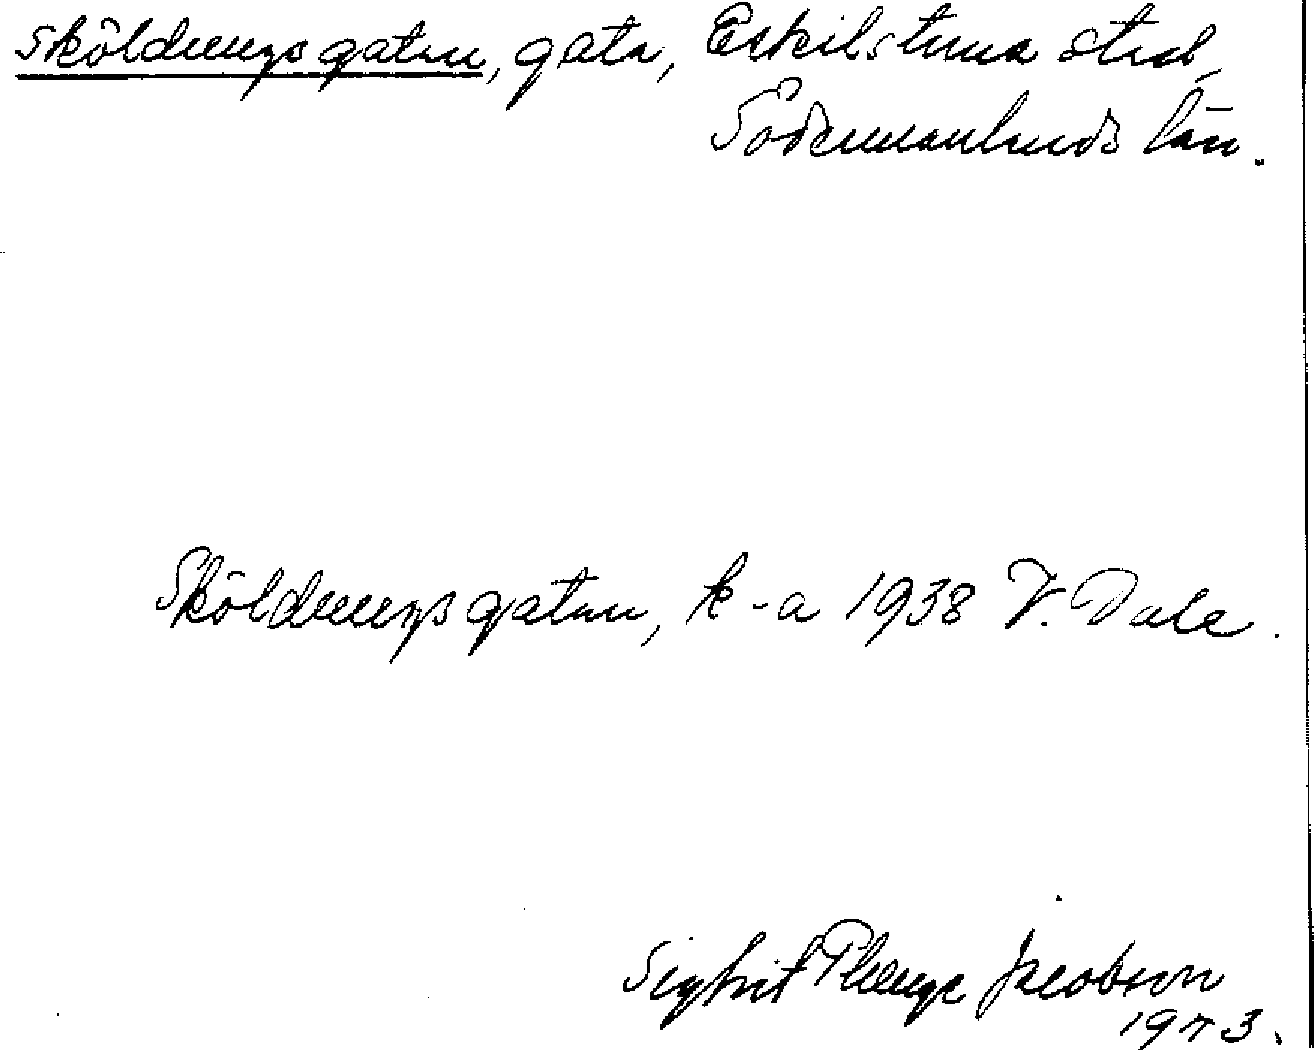 Sköldungsgatan, gata, Eskilstuna stad,
Södermanlands län.
Sköldungsgatan, k-a 1938 V. Dale.
Sigfrit Plenge Jacobson
1973.